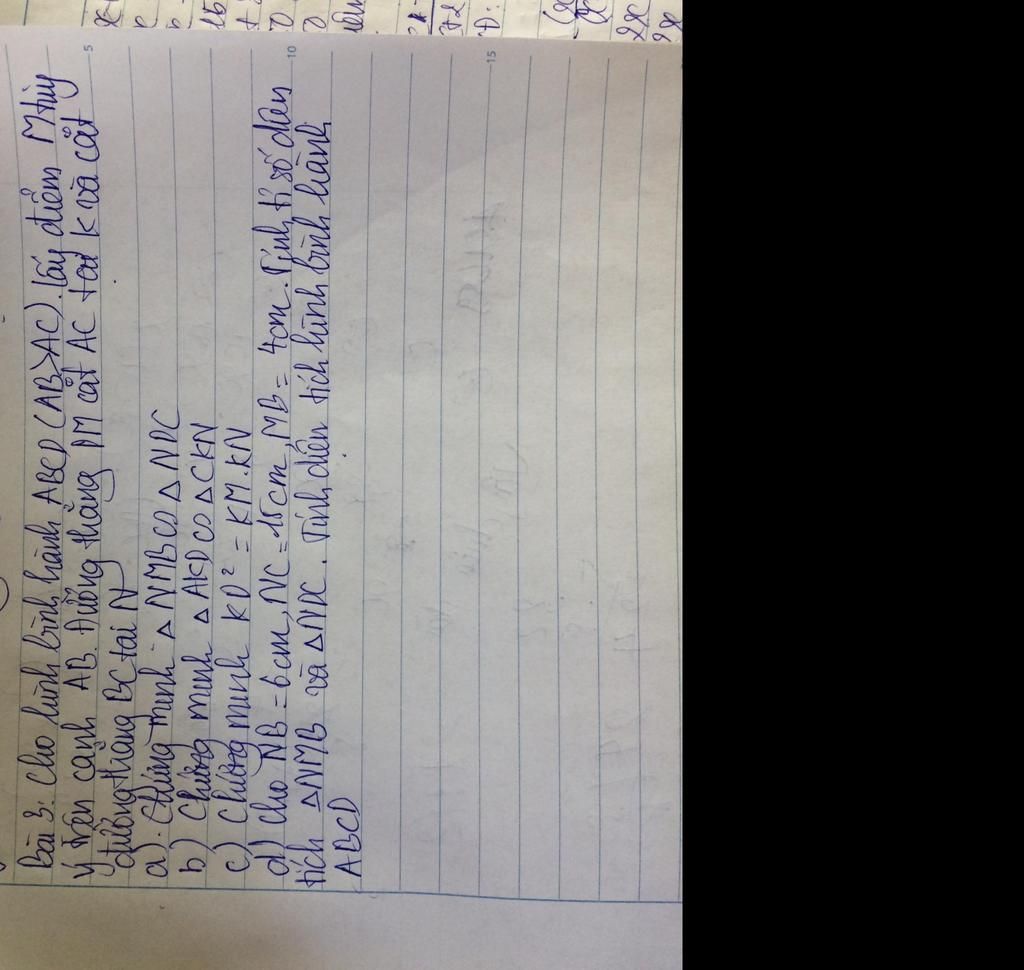 Bài 3. Cho hình bình hành ABCD (AB>AC). lấy điểm M tùy
ý trên cạnh AB. Đường thẳng DM cắt AC tại K và cắt
đường thẳng BC tại N
a). Chứng minh Δ NMB ∽ Δ NDC
b) Chứng minh Δ AKD ∽ Δ CKN
c) Chứng minh KD² = KM.KN
d) Cho NB = 6cm, NC = 15cm, MB = 4cm. Tính tỉ số diện
tích ΔNMB và ΔNDC. Tính diện tích hình bình hành
ABCD
5
10
15